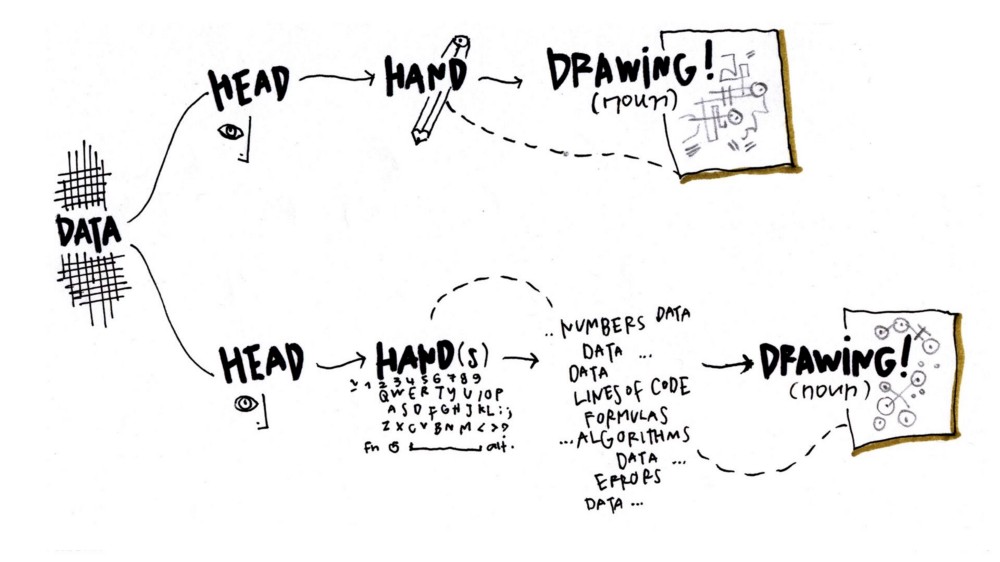 DATA
HEAD
HAND
DRAWING!
(noun)
HEAD
HAND(S)
~ 1 2 3 4 5 6 7 8 9
Q W E R T Y U I O P
A S D F G H J K L : ;
Z X C V B N M < > ?
fn alt.
.. NUMBERS DATA
DATA ...
DATA
LINES OF CODE
FORMULAS
... ALGORITHMS
DATA ...
ERRORS
DATA ...
DRAWING!
(noun)